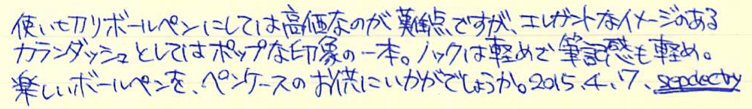 使い切りボールペンにしては高価なのが難点ですが、エレガントなイメージのある
カランダッシュとしてはポップな印象の一本。ノックは軽めで筆記感も軽め。
楽しいボールペンを、ペンケースのお供にいかがでしょうか。2015.4.17、